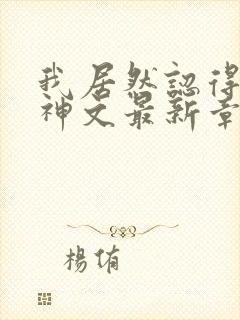 我居然認得
神文最新章
楊侑